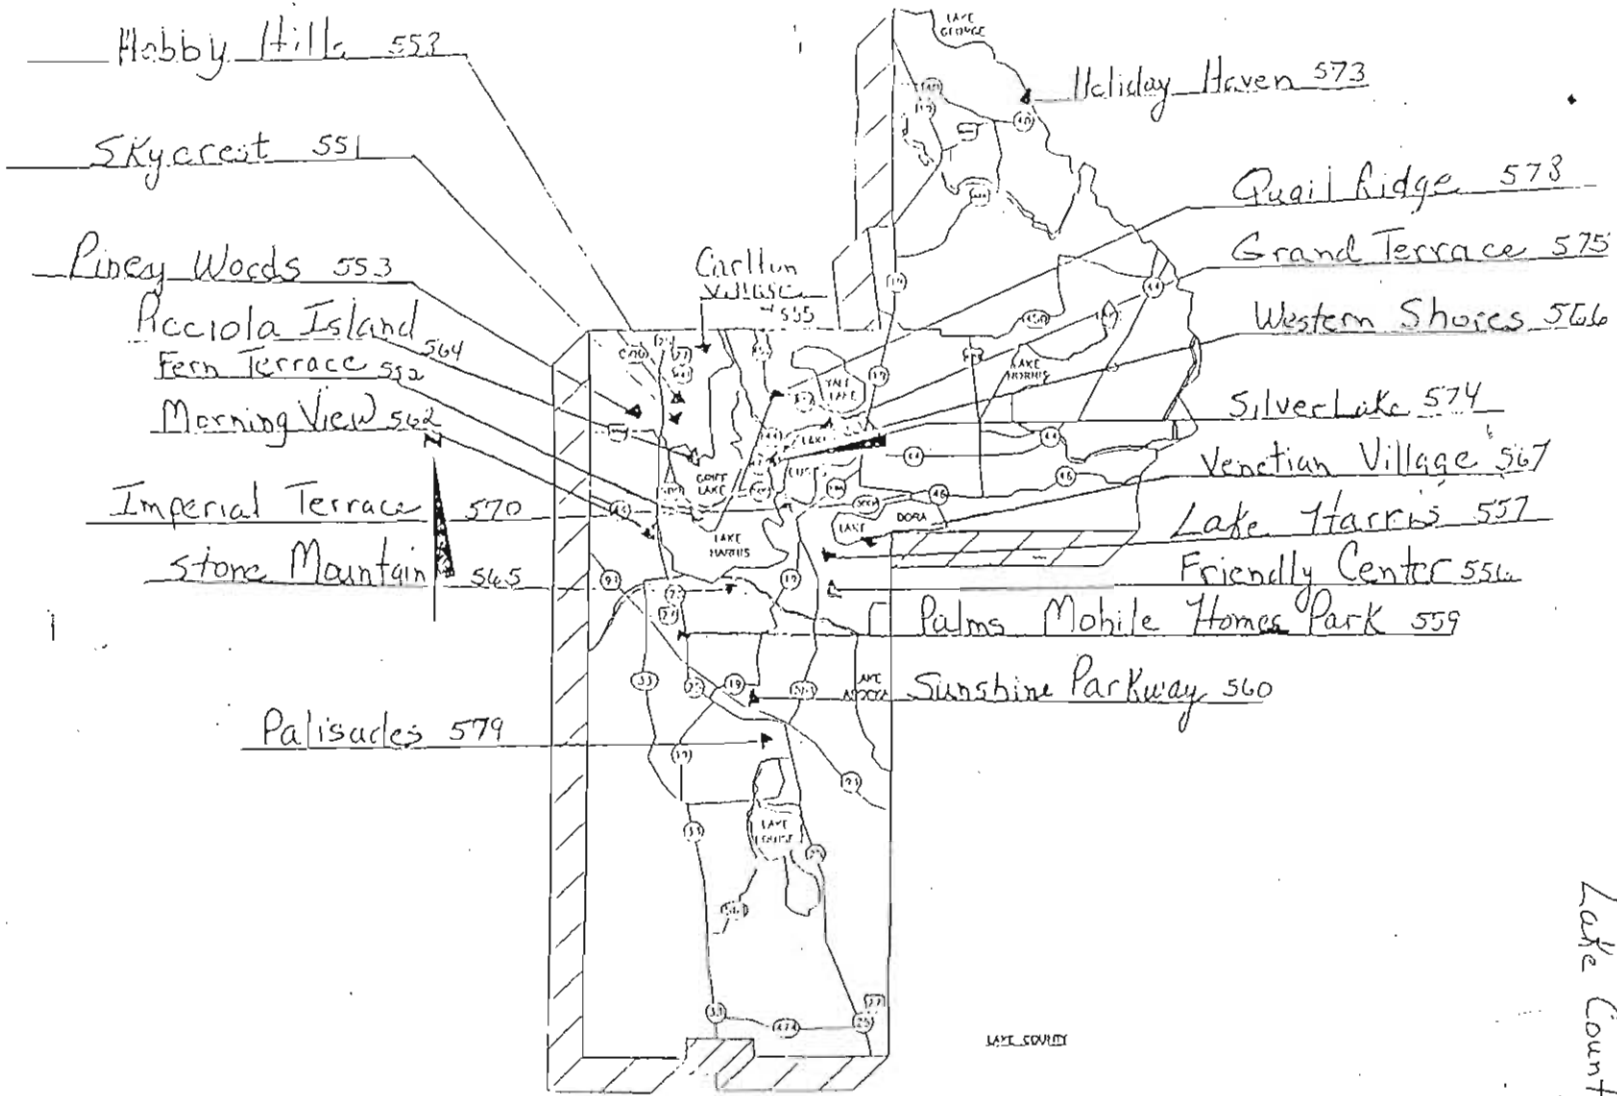 Hobby Hills 553
Skycrest 551
Piney Woods 553
Picciola Island
564
Fern Terrace 552
Morning View 562
N
Imperial Terrace 570
Stone Mountain 565
Palisades 579
Carlton
Village
555
Holiday Haven 573
Quail Ridge 578
Grand Terrace 575
Western Shores 566
Silver Lake 574
Venetian Village 567
Lake Harris 557
Friendly Center 556
Palms Mobile Homes Park 559
Sunshine Parkway 560
LAKE
GEORGE
LAKE
NORRIS
YALE
LAKE
LAKE
LAKE
LAKE
HARRIS
LAKE
DORA
LAKE
APOPKA
LAKE
LOUISE
19
44
44
44
46
46
19
33
19
33
561
33
474
27
25
LAKE COUNTY
Lake Count